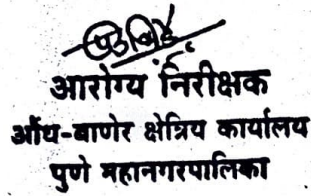 आरोग्य निरीक्षक
औंध-बाणेर क्षेत्रिय कार्यालय
पुणे महानगरपालिका